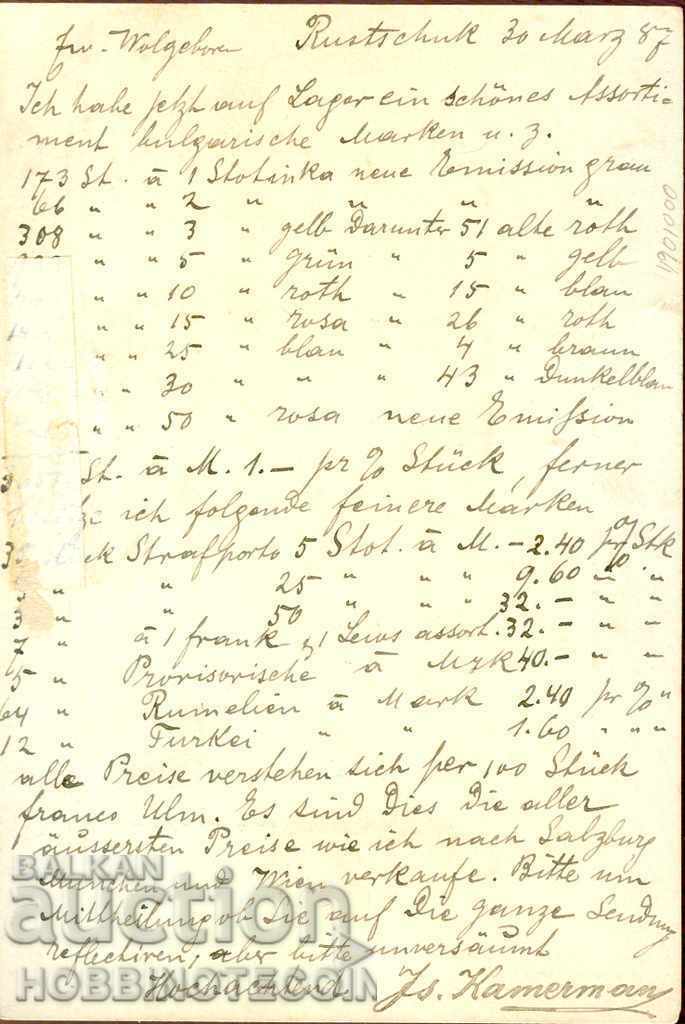 Rustschuk 30 Marz 87
Ew. Wolgeboren
Ich habe jetzt auf Lager ein schönes Assorti-
ment bulgarische Marken u. z.
173 St. à 1 Stotinka neue Emission grau
66 " " 2 " " " "
308 " " 3 " gelb Darunter 51 alte roth
" " 5 " grün " 5 " gelb
" " 10 " roth " 15 " blau
" " 15 " rosa " 26 " roth
" " 25 " blau " 4 " braun
" " 30 " " " 43 " Dunkelblau
" " 50 " rosa neue Emission
St. à M. 1.- pr % Stück, ferner
ich folgende feinere Marken
Strafporto 5 Stot. à M. - 2.40 pr % Stk
" " 25 " " " 9.60 " " "
" " 50 " " " 32.- " " "
7 " à 1 frank, 1 Lews assort. 32.- " " "
5 " Provisorische à Mrk 40.- " "
64 " Rumelien à Mark 2.40 pr % "
12 " Turkei " " 1.60 " " "
alle Preise verstehen sich per 100 Stück
franco Ulm. Es sind Dies Die aller
äussersten Preise wie ich nach Salzburg
München und Wien verkaufe. Bitte um
Mittheilung ob Sie auf Die ganze Sendung
reflectiren, aber bitte unversäumt
Hochachtend Js. Kamerman
1901000
BALKAN
auction
HOBBYNOTECOIN